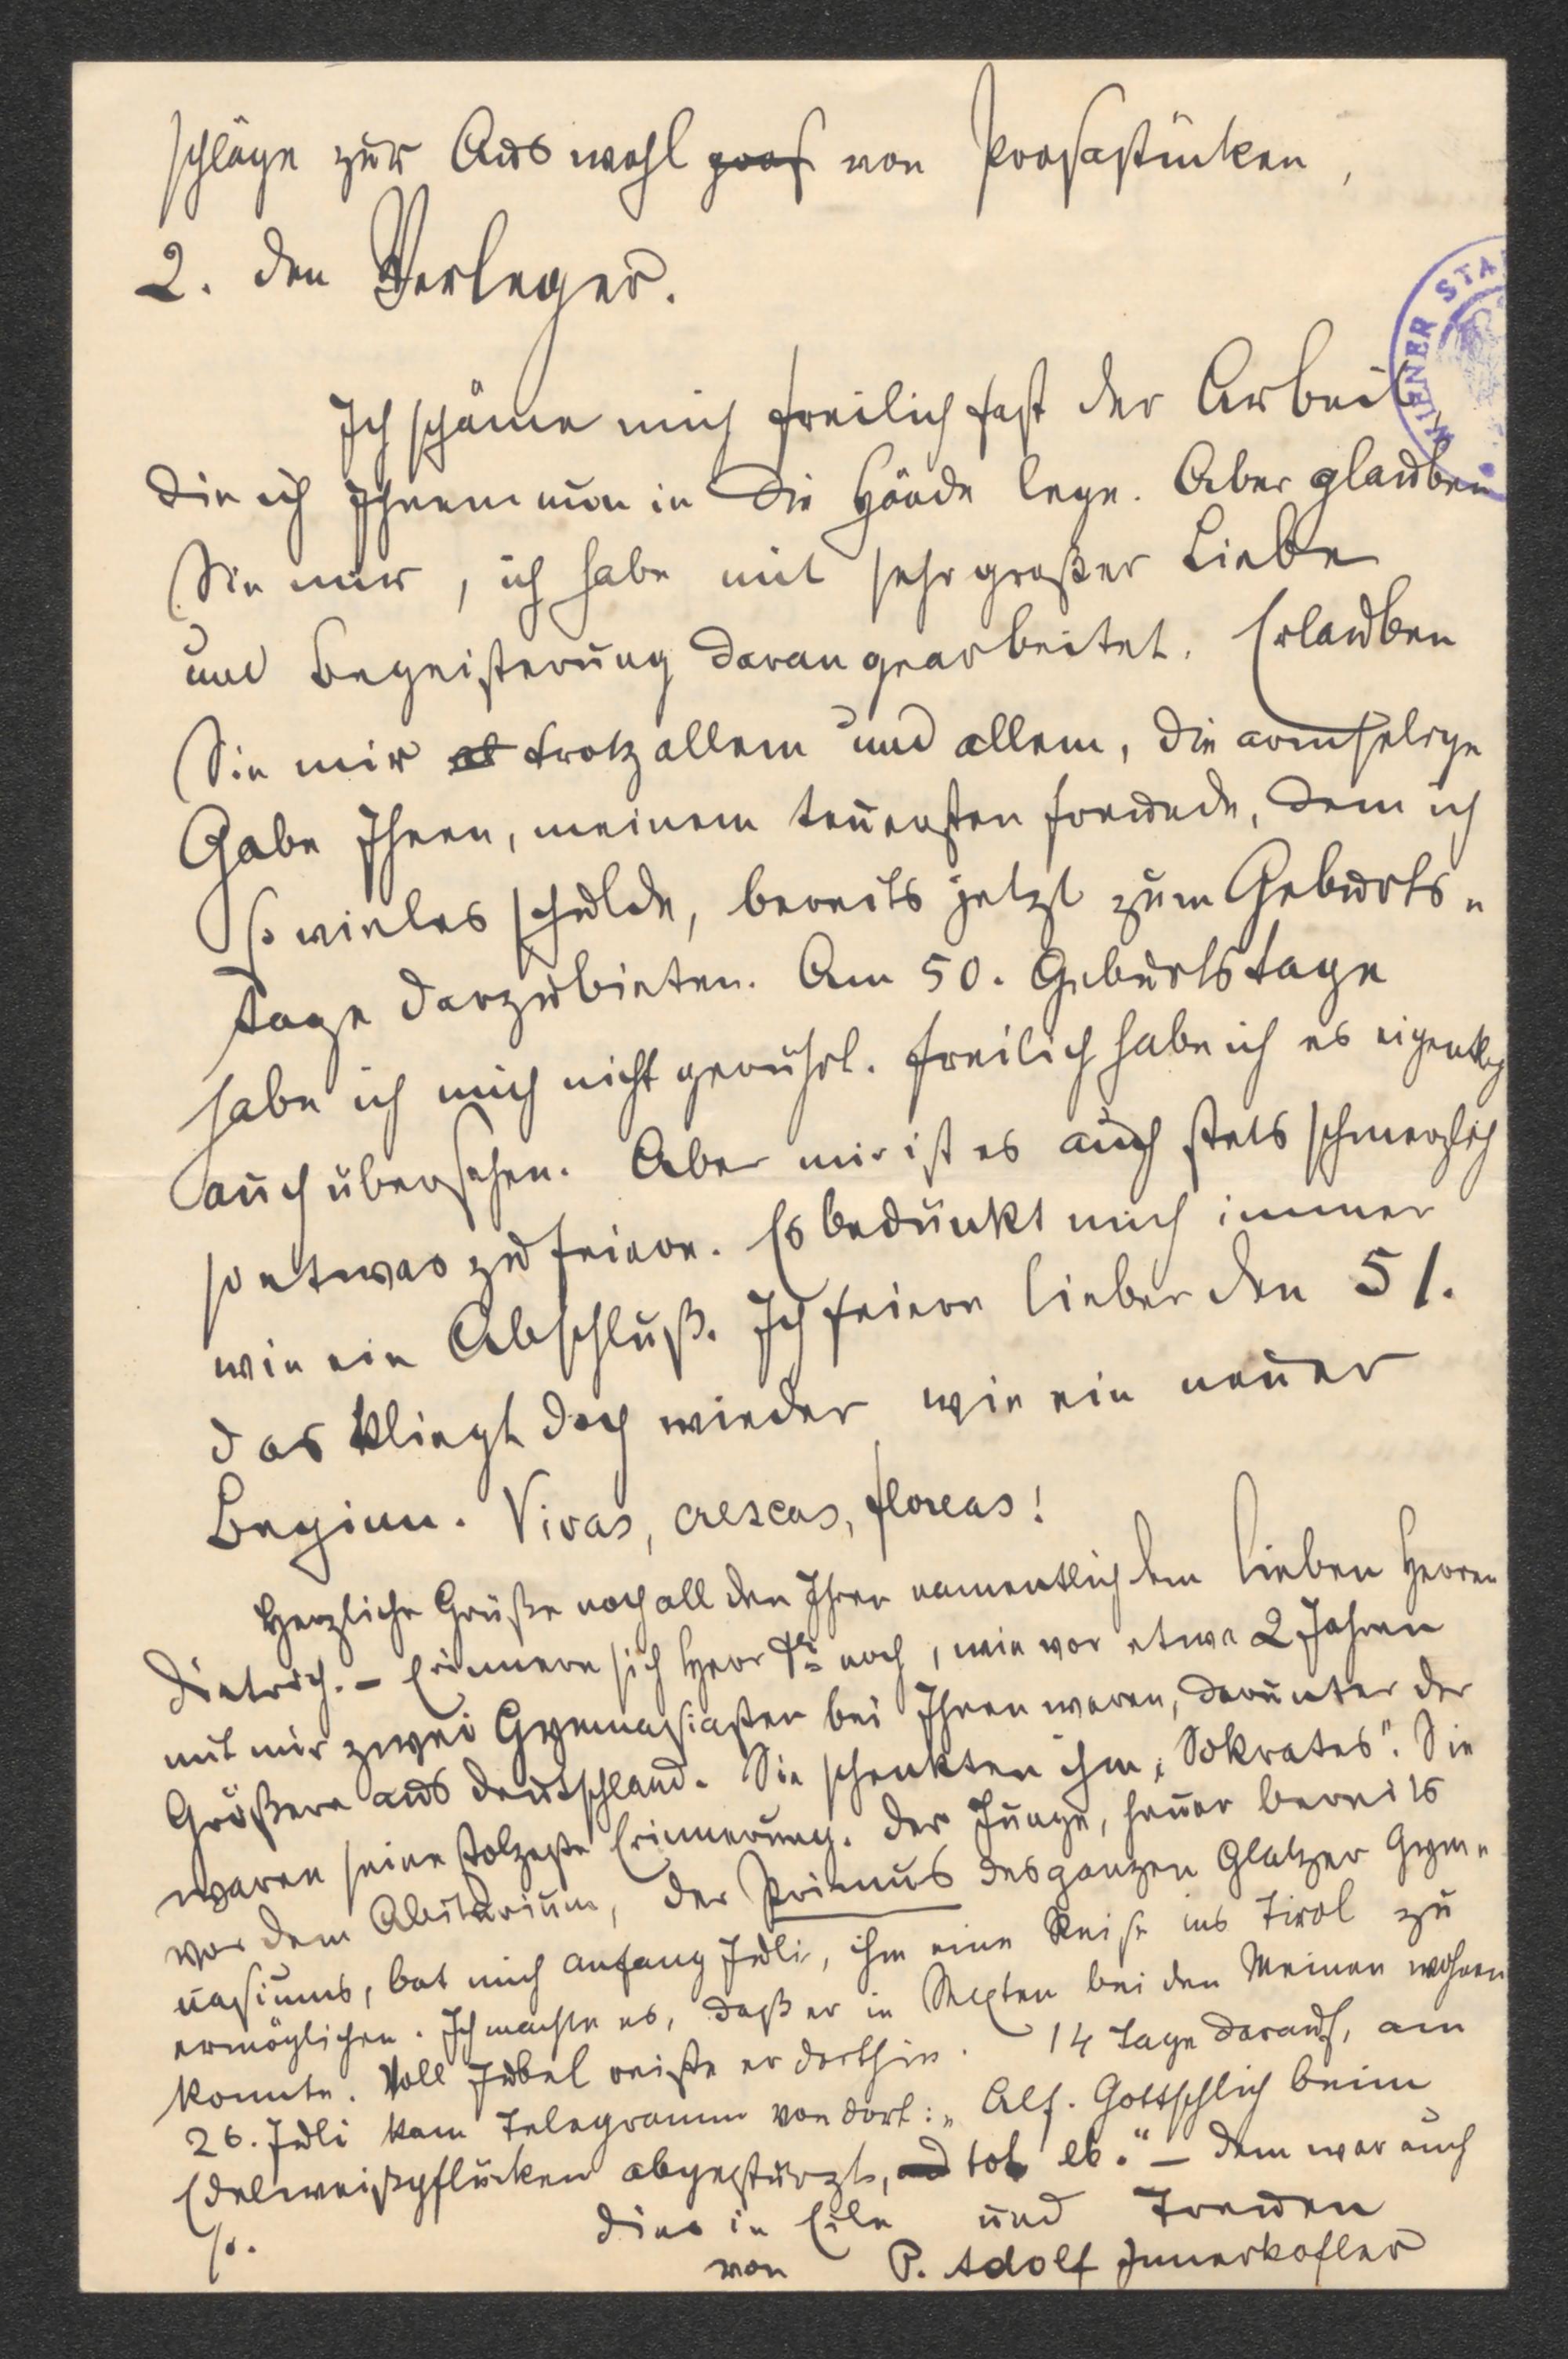 schläge zur Auswahl pros von Prosastücken,
2. den Verleger.
WIENER STA
Ich schäme mich freilich fast der Arbeit,
die ich Ihnen nun in die Hände lege. Aber glauben
Sie mir, ich habe mit sehr großer Liebe
und Begeisterung daran gearbeitet. Erlauben
Sie mir trotz allem und allem, die armselige
Gabe Ihnen, meinem teuersten Freunde, dem ich
so vieles schulde, bereits jetzt zum Geburts-
tage darzubieten. Am 50. Geburtstage
habe ich mich nicht gerührt. Freilich habe ich es eigentlich
auch übersehen. Aber mir ist es auch stets schmerzlich
so etwas zu feiern. Es bedünkt mich immer
wie ein Abschluß. Ich feiere lieber den 51.
das klingt doch wieder wie ein neuer
Beginn. Vivas, crescas, floreas!
Herzliche Grüße noch all den Ihren namentlich dem lieben Herrn
Dietrich. – Erinnern sich Herr noch, wie vor etwa 2 Jahren
mit mir zwei Gymnasiasten bei Ihnen waren, darunter der
Größere aus Deutschland. Sie schenkten ihm „Sokrates". Sie
waren seine stolzeste Erinnerung. Der Junge, heuer bereits
vor dem Abiturium, der Primus des ganzen Glatzer Gym-
nasiums, bat mich anfang Juli, ihm eine Reise ins Tirol zu
ermöglichen. Ich machte es, daß er in Sexten bei den Meinen wohnen
konnte. Voll Jubel reiste er dorthin. 14 Tage darauf, am
26. Juli kam Telegramm von dort: „Alf. Gottschlich beim
Edelweißpflücken abgestürzt, tot." – Dem war auch
so. Dies in Eile und Treuen
von P. Adolf Innerkofler